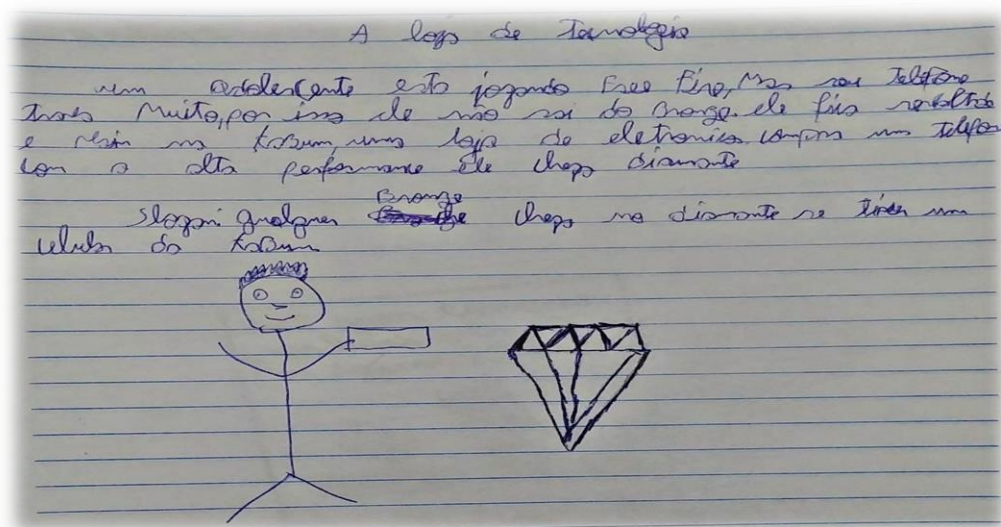 A loja de Tecnologia
um adolescente esta jogando Free Fire, Mas seu Telefone
trava Muito, por isso ele não sai do Bronze. ele fica revoltado
e na KaBum, uma loja de eletronica, compra um telefone
com a alta performance Ele chega diamante
Slogan: qualquer Bronze chega no diamante se tiver um
celular da KaBum